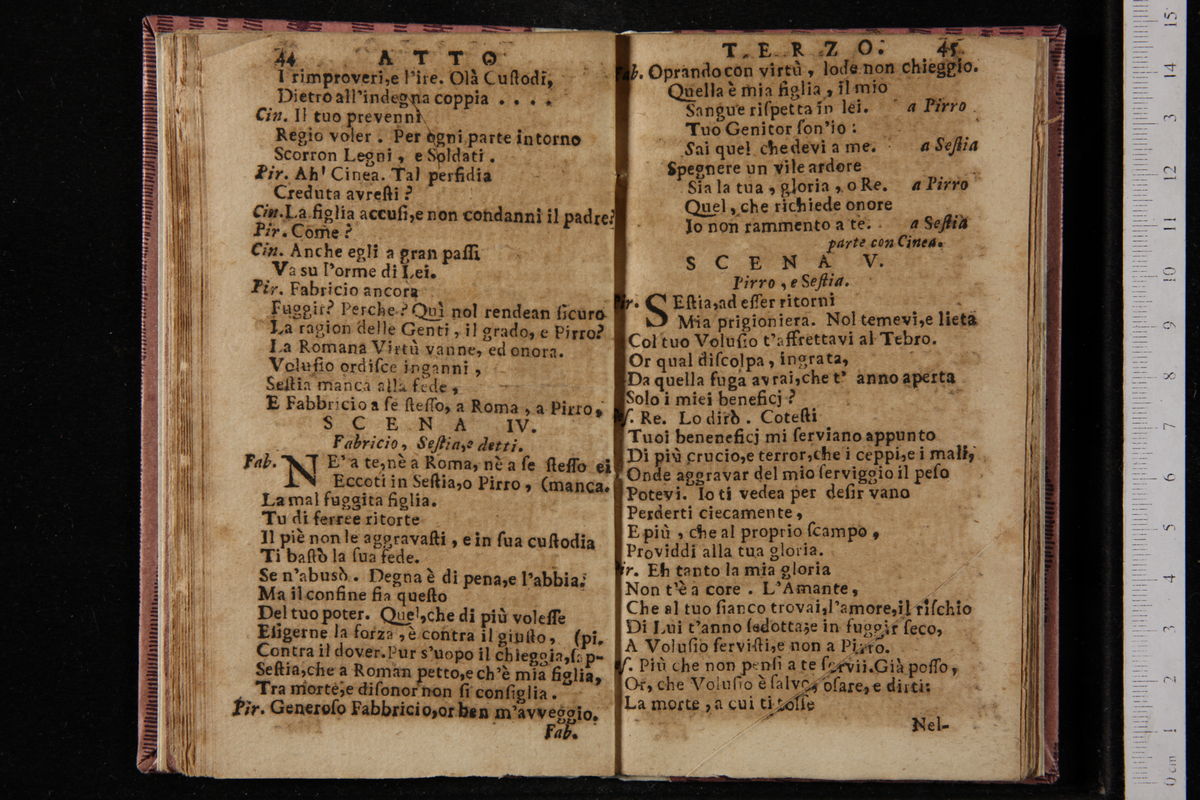 44 ATTO
I rimproveri,e l'ire. Olà Cuſtodi,
Dietro all'indegna coppia . . . .
Cin. Il tuo prevenni
Regio voler . Per ogni parte intorno
Scorron Legni , e Soldati .
Pir. Ah' Cinea. Tal perfidia
Creduta avreſti ?
Cin.La figlia accuſi,e non condanni il padre?
Pir. Come ?
Cin. Anche egli a gran paſſi
Va su l'orme di Lei.
Pir. Fabricio ancora
Fuggir? Perche ? Quì nol rendean ſicuro
La ragion delle Genti , il grado, e Pirro?
La Romana Virtù vanne, ed onora.
Voluſio ordiſce inganni ,
Seſtia manca alla fede ,
E Fabbricio a ſe ſteſſo, a Roma , a Pirro,
SCENA IV.
Fabricio, Seſtia,e detti.
Fab. NE' a te,nè a Roma, nè a ſe ſteſſo ei
Eccoti in Seſtia,o Pirro , (manca.
La mal fuggita figlia.
Tu di ferree ritorte
Il piè non le aggravaſti , e in ſua cuſtodia
Ti baſtò la ſua fede.
Se n'abusò . Degna è di pena,e l'abbia:
Ma il confine fia queſto
Del tuo poter. Quel,che di più voleſſe
Eſigerne la forza , è contra il giuſto, (pi.
Contra il dover.Pur s'uopo il chieggia,ſap-
Seſtia,che a Roman petto,e ch'è mia figlia,
Tra morte,e diſonor non ſi conſiglia .
Pir. Generoſo Fabbricio,or ben m'avveggio.
Fab.
TERZO. 45
Fab. Oprando con virtù , lode non chieggio.
Quella è mia figlia , il mio
Sangue riſpetta in lei. a Pirro
Tuo Genitor ſon'io :
Sai quel che devi a me. a Seſtia
Spegnere un vile ardore
Sia la tua , gloria , o Re. a Pirro
Quel , che richiede onore
Io non rammento a te. a Seſtia
parte con Cinea.
SCENA V.
Pirro , e Seſtia.
Pir. SEſtia,ad eſſer ritorni
Mia prigioniera. Nol temevi,e lieta
Col tuo Voluſio t'affrettavi al Tebro.
Or qual diſcolpa , ingrata,
Da quella fuga avrai,che t' anno aperta
Solo i miei beneficj ?
ſ. Re. Lo dirò . Coteſti
Tuoi beneneficj mi ſerviano appunto
Di più crucio,e terror,che i ceppi,e i mali,
Onde aggravar del mio ſerviggio il peſo
Potevi. Io ti vedea per deſir vano
Perderti ciecamente ,
E più , che al proprio ſcampo ,
Providdi alla tua gloria.
ir. Eh tanto la mia gloria
Non t'è a core . L'Amante,
Che al tuo fianco trovai,l'amore,il riſchio
Di Lui t'anno ſedotta;e in fuggir ſeco,
A Voluſio ſerviſti,e non a Pirro.
ſ. Più che non penſi a te ſervii.Già poſſo ,
Or, che Voluſio è ſalvo, oſare, e dirti:
La morte , a cui ti tolſe
Nel-